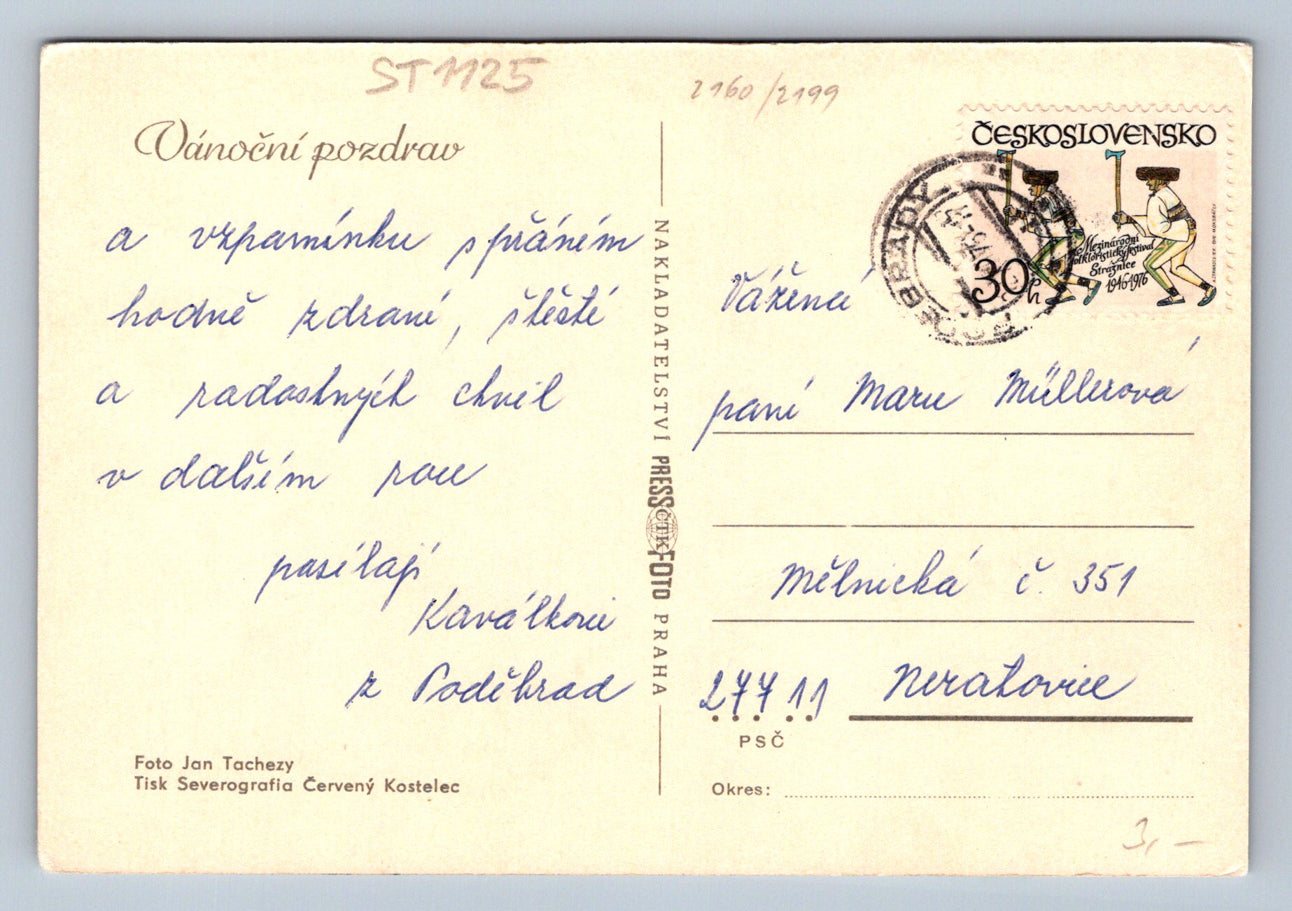 ST 1125
2160/2199
Vánoční pozdrav
a vzpomínku s přáním
hodně zdraví, štěstí
a radostných chvil
v dalším roce
posílají
Kaválkovi
z Poděbrad
Foto Jan Tachezy
Tisk Severografia Červený Kostelec
NAKLADATELSTVÍ PRESSFOTO PRAHA
ČTK
ČESKOSLOVENSKO
Mezinárodní
folkloristický festival
Strážnice
1946-1976
30h
PODĚBRADY
Vážená
paní Marie Müllerová
Mělnická č. 351
277 11 Neratovice
PSČ
Okres:
3,-